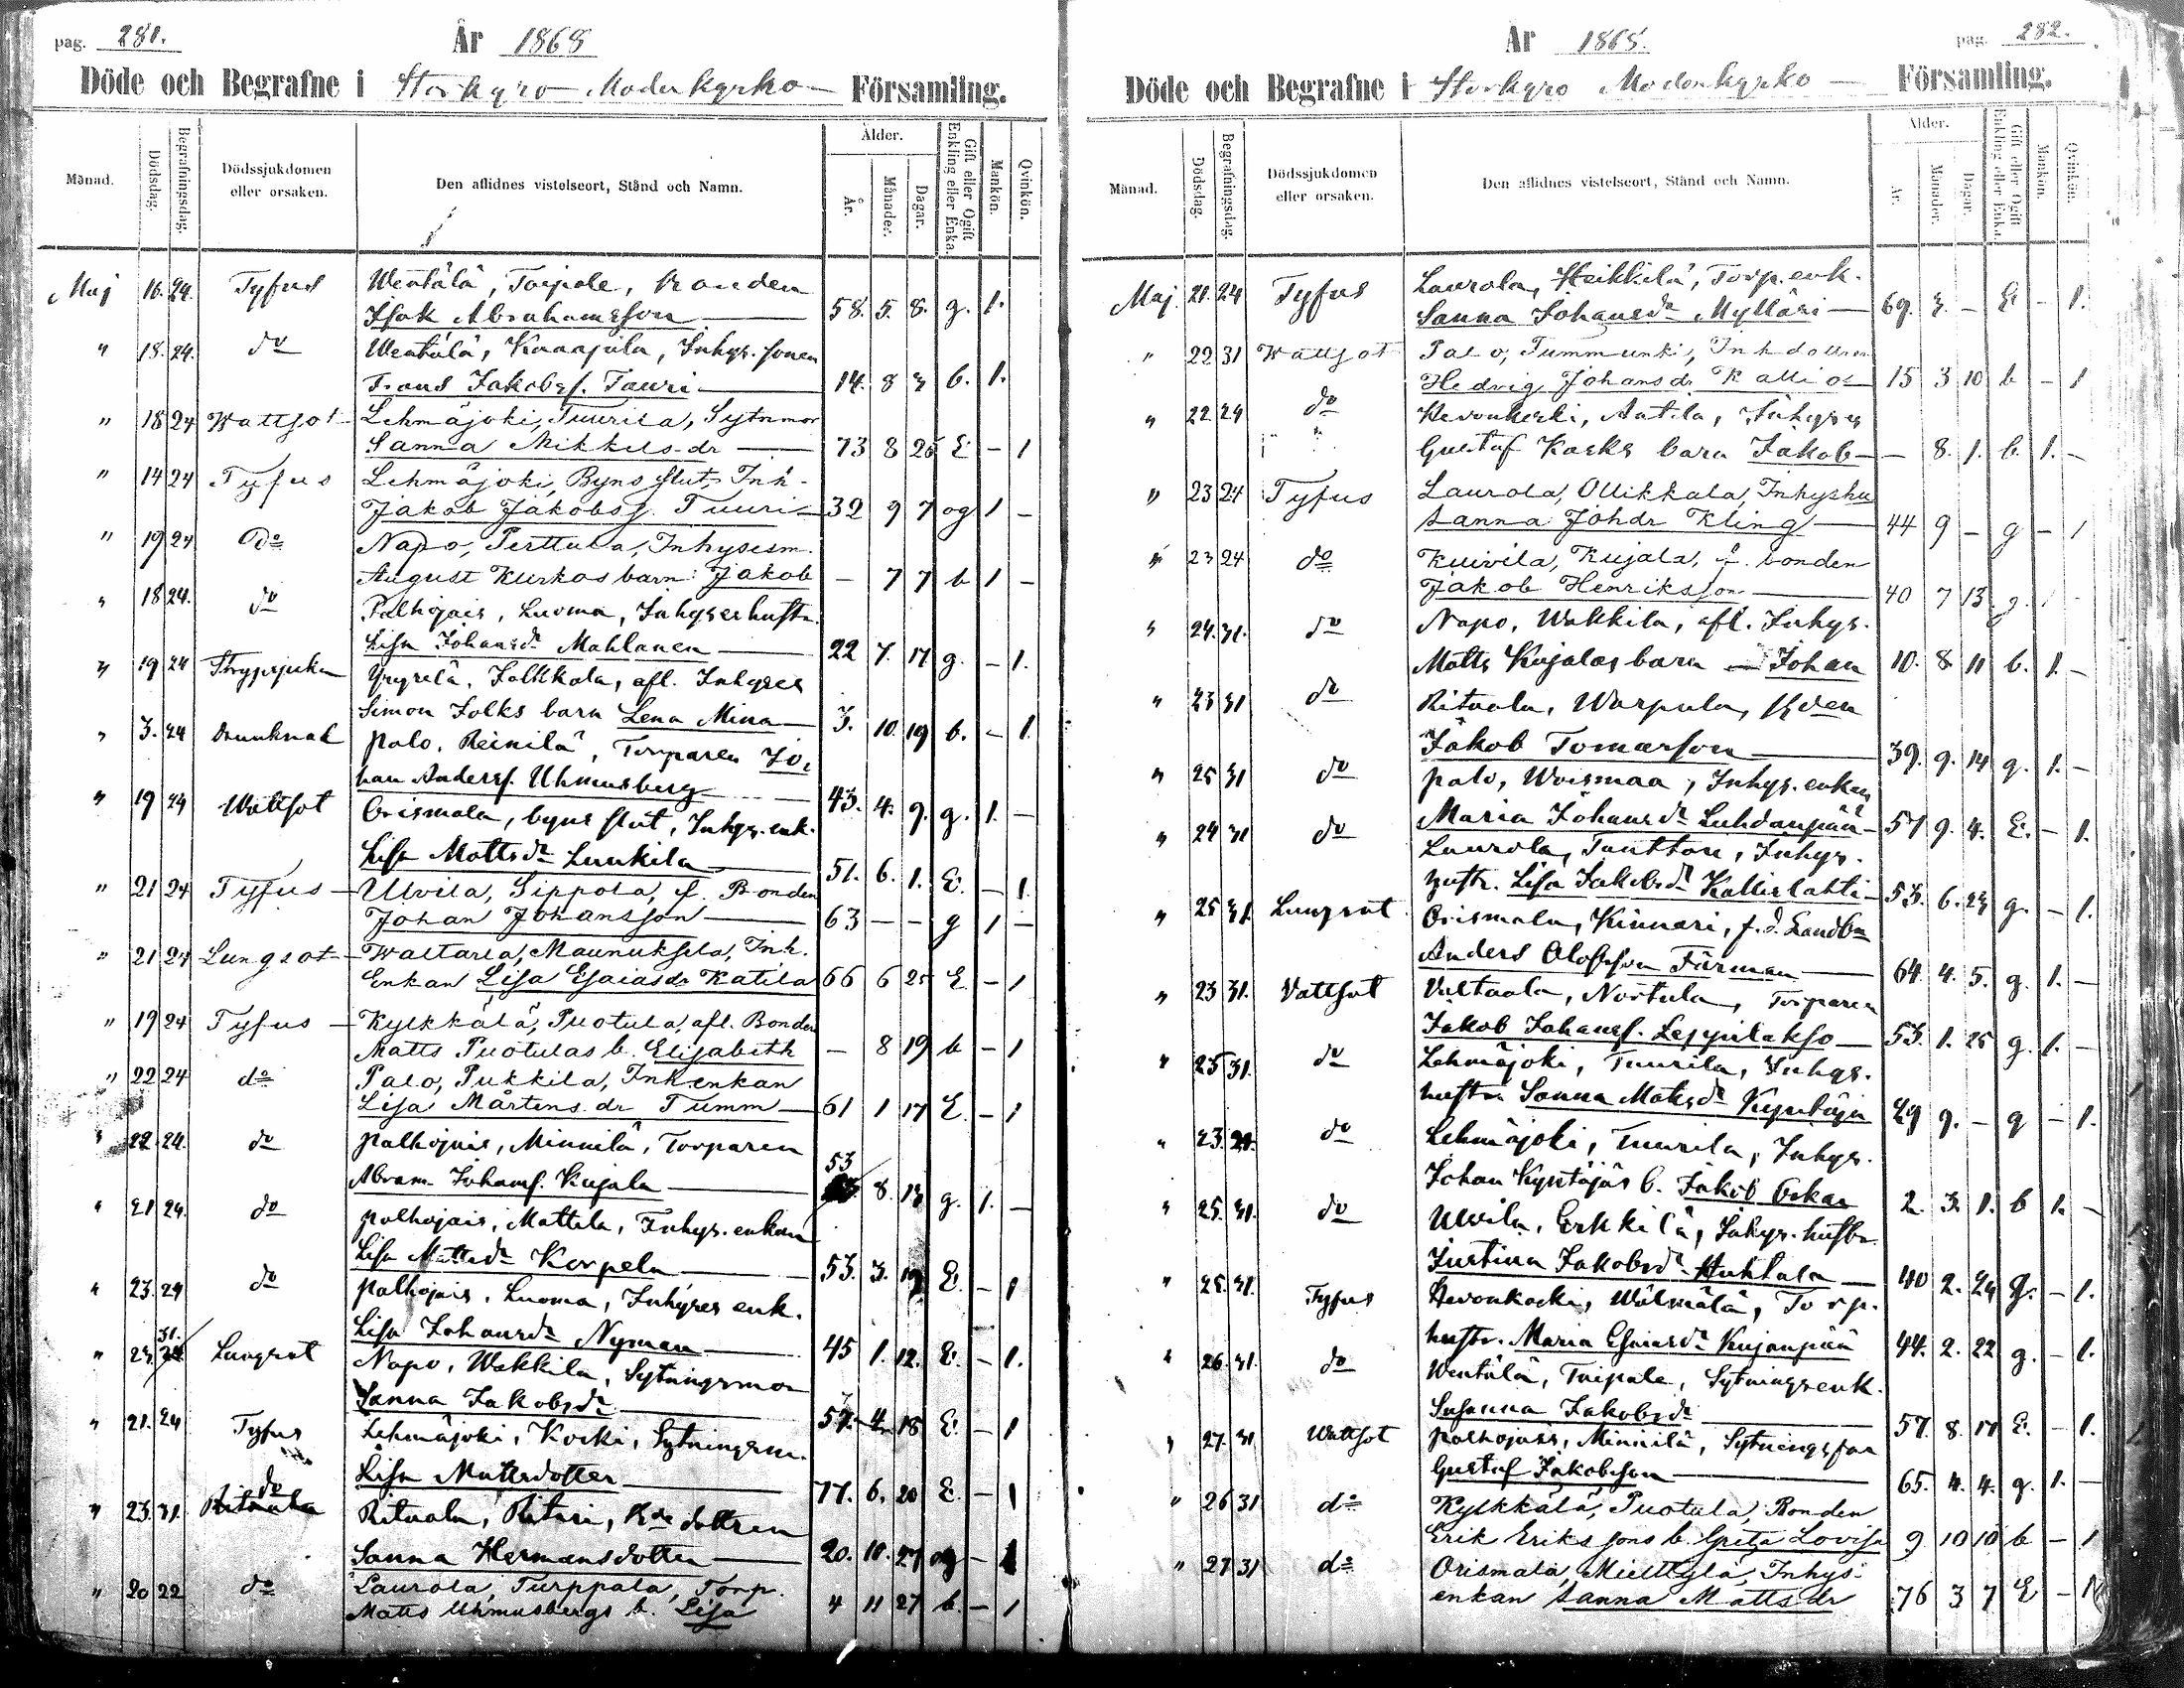 pag. 281.
År 1868
Döde och Begrafne i Storkyro Moderkyrko Församling.
Månad. Dödsdag. Begrafningsdag. Dödssjukdomen eller orsaken. Den aflidnes vistelseort, Stånd och Namn. Ålder. År. Månader. Dagar. Gift eller Ogift Enkling eller Enka. Mankön. Qvinkön.
Maj 16. 24. Tyfus Wentälä, Taipale, bonden
Isak Abrahamsson 58. 5. 8. g. 1.
" 18. 24. do Wentälä, Kaarjula, Inhys. sonen
Frans Jakobss. Tauri 14. 8 3 b. 1.
" 18 24 Wattsot Lehmäjoki, Tuurila, Sytnmor
Sanna Mikkels dr 73 8 25 E - 1
" 14 24 Tyfus Lehmäjoki, Byns slut, Inh.
Jakob Jakobss. Tuuri 32 9 7 og 1 -
" 19 24 do Napo, Perttula, Inhysesm.
August Kurkas barn: Jakob - 7 7 b 1 -
" 18 24. do Palhojais, Luoma, Inhyseshustr.
Lisa Johansdr Mahlanen 22 7. 17 g. - 1.
" 19 24 Strypsjukan Yryselä, Jolkkola, afl. Inhyses
Simon Jolks barn Lena Mina 3. 10. 19 b. - 1.
" 3. 24 Drunknad Palo, Reinilä, Torparen Jo,
han Anderss. Uhmusberg 43. 4. 9. g. 1. -
" 19 24 Wattsot Orismala, byns slut, Inhys. enk.
Lisa Mattsdr Luukila 51. 6. 1. E. - 1.
" 21 24 Tyfus Ulvila, Sippola, f. Bonden
Johan Johansson 63 - - g 1 -
" 21 24 Lungsot Waltaria, Maunuksela, Inh.
Enkan Lisa Esaiasdr Katila 66 6 25 E - 1
" 19 24 Tyfus Kylkkälä, Puotula, afl. Bonden
Matts Puotulas b. Elisabeth - 8 19 b - 1
" 22 24 do Palo, Pukkila, Inh enkan
Lisa Mårtens dr Tumm 61 1 17 E - 1
" 22 24. do Palhojais, Minnilä, Torparen
Abram Johanss. Kujala 53 8. 13 g. 1. -
" 21 24. do Palhojais, Mattila, Inhys. enkan
Lisa Mattsdr Korpela 53. 3. 19 E. - 1
" 23. 24 do Palhojais, Luoma, Inhyses enk.
Lisa Johansdr Nyman 45 1. 12. E. - 1.
" 23. 31. Lungsot Napo, Wakkila, Sytningsmor
Sanna Jakobsdr 57. 4. 18 E. - 1
" 21. 24 Tyfus Lehmäjoki, Koski, Sytningsm.
Lisa Mattsdotter 77. 6. 20 E. - 1
" 23. 31. do Ritaala, Ritari, Bde dottren
Sanna Hermansdotter 20. 10. 27 og - 1
" 20 22 do Laurola, Turppala, Torp.
Matts Uhmusbergs b. Lisa 4 11 27 b. - 1
År 1868.
pag. 282.
Döde och Begrafne i Storkyro Moderkyrko Församling.
Månad. Dödsdag. Begrafningsdag. Dödssjukdomen eller orsaken. Den aflidnes vistelseort, Stånd och Namn. Ålder. År. Månader. Dagar. Gift eller Ogift Enkling eller Enka. Mankön. Qvinkön.
Maj. 21. 24 Tyfus Laurola, Heikkilä, Torp. enk.
Sanna Johansdr Mylläri 69. 3. - E - 1.
" 22 31 Wattsot Palo, Tummunki, Inh dottren
Hedvig Johans dr Kallios 15 3 10 b - 1
" 22. 24 do Hevonkoski, Antila, Inhyses
Gustaf Kosks barn Jakob - 8. 1. b. 1. -
" 23 24 Tyfus Laurola, Ollikkala, Inhyshu
Sanna Johdr Kling 44 9 - g - 1
" 23 24 do Kuivila, Kujala, f. bonden
Jakob Henriksson 40 7 13 g. 1 -
" 24. 31. do Napo, Wakkila, afl. Inhys.
Matts Kujalas barn Johan 10. 8 11 b. 1. -
" 23 31 do Ritaala, Warpula, Bden
Jakob Tomasson 39. 9. 14 g. 1. -
" 25 31 do Palo, Woismaa, Inhys. enkan
Maria Johansdr Luhdanpää 57 9. 4. E. - 1.
" 24 31 do Laurola, Tanttari, Inhys.
hustr. Lisa Jakobsdr Kallislahti 53. 6. 23 g. - 1.
" 25 31. Lungsot Orismala, Kinnari, f. d. Landbn
Anders Olofsson Färman 64. 4. 5. g. 1. -
" 23 31. Vattsot Valtaala, Nortula, Torparen
Jakob Johanss. Leppilakso 53. 1. 25 g. 1. -
" 25 31. do Lehmäjoki, Tuurila, Inhys.
hustru Sanna Matsdr Kyntäjä 49 9. - g - 1.
" 23. do Lehmäjoki, Tuurila, Inhys.
Johan Kyntäjäs b. Jakob Oskar 2. 3. 1. b 1. -
" 25. 31. do Ulvila, Erkkilä, Inhys. hustr.
Justina Jakobsdr Huhtala 40 2. 24 g. - 1.
" 25. 31. Tyfus Hevonkoski, Wälmälä, Torp.
hustr. Maria Esaiasdr Kujanpää 44. 2. 22 g. - 1.
" 26. 31. do Wentälä, Taipale, Sytningsenk.
Susanna Jakobsdr 57. 8. 17 E. - 1.
" 27. 31 Wattsot Palhojais, Minnilä, Sytningsfar
Gustaf Jakobsson 65. 4. 4. g. 1. -
" 26 31 do Kylkkälä, Puotula, Bonden
Erik Eriks sons b. Greta Lovisa 9 10 10 b - 1
" 27 31 do Orismala, Miettylä, Inhys.
enkan Sanna Matts dr 76 3 7 E - 1